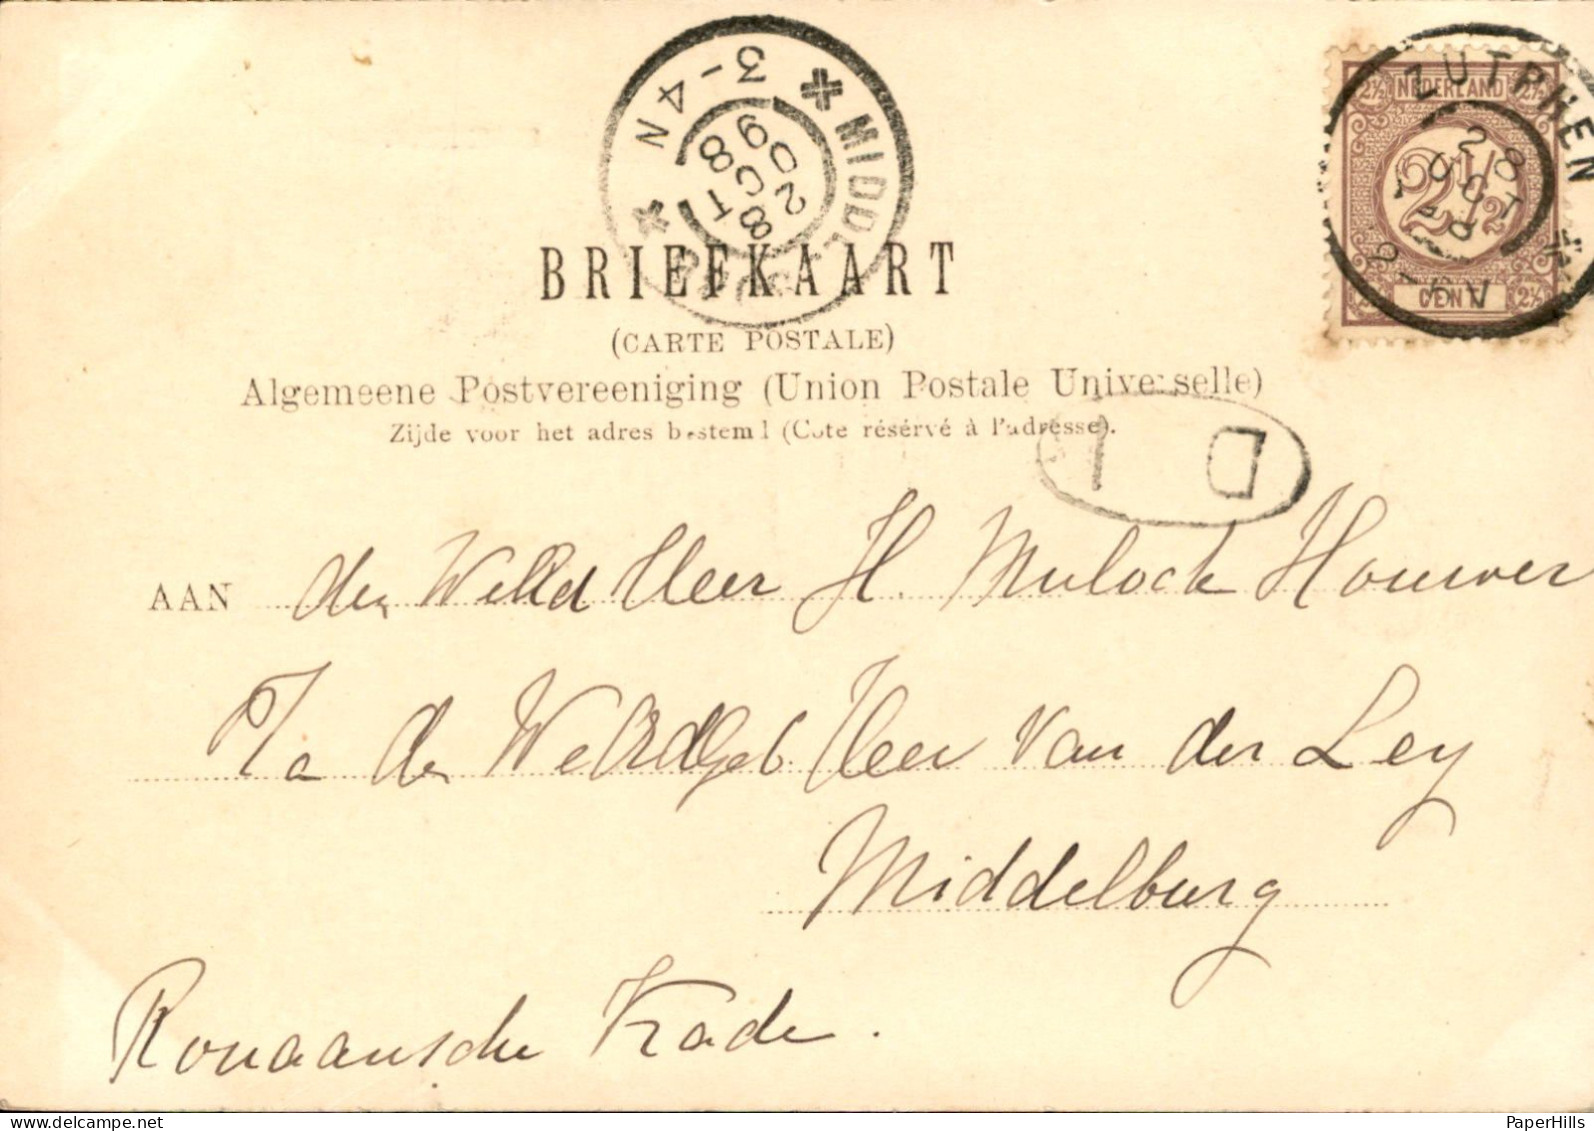 3-4 N
MIDDELBURG
28 OCT 98
NEDERLAND
2½ 2½
2½
CENT
2½ 2½
ZUTPHEN
28 OCT 98
BRIEFKAART
(CARTE POSTALE)
Algemeene Postvereeniging (Union Postale Universelle)
Zijde voor het adres bestemd (Côté réservé à l'adresse).
D
AAN den WelEd Heer H. Mulock Houwer
P/a den WelEdGeb. Heer van der Ley
Middelburg
Rouaansche Kade.
PaperHills